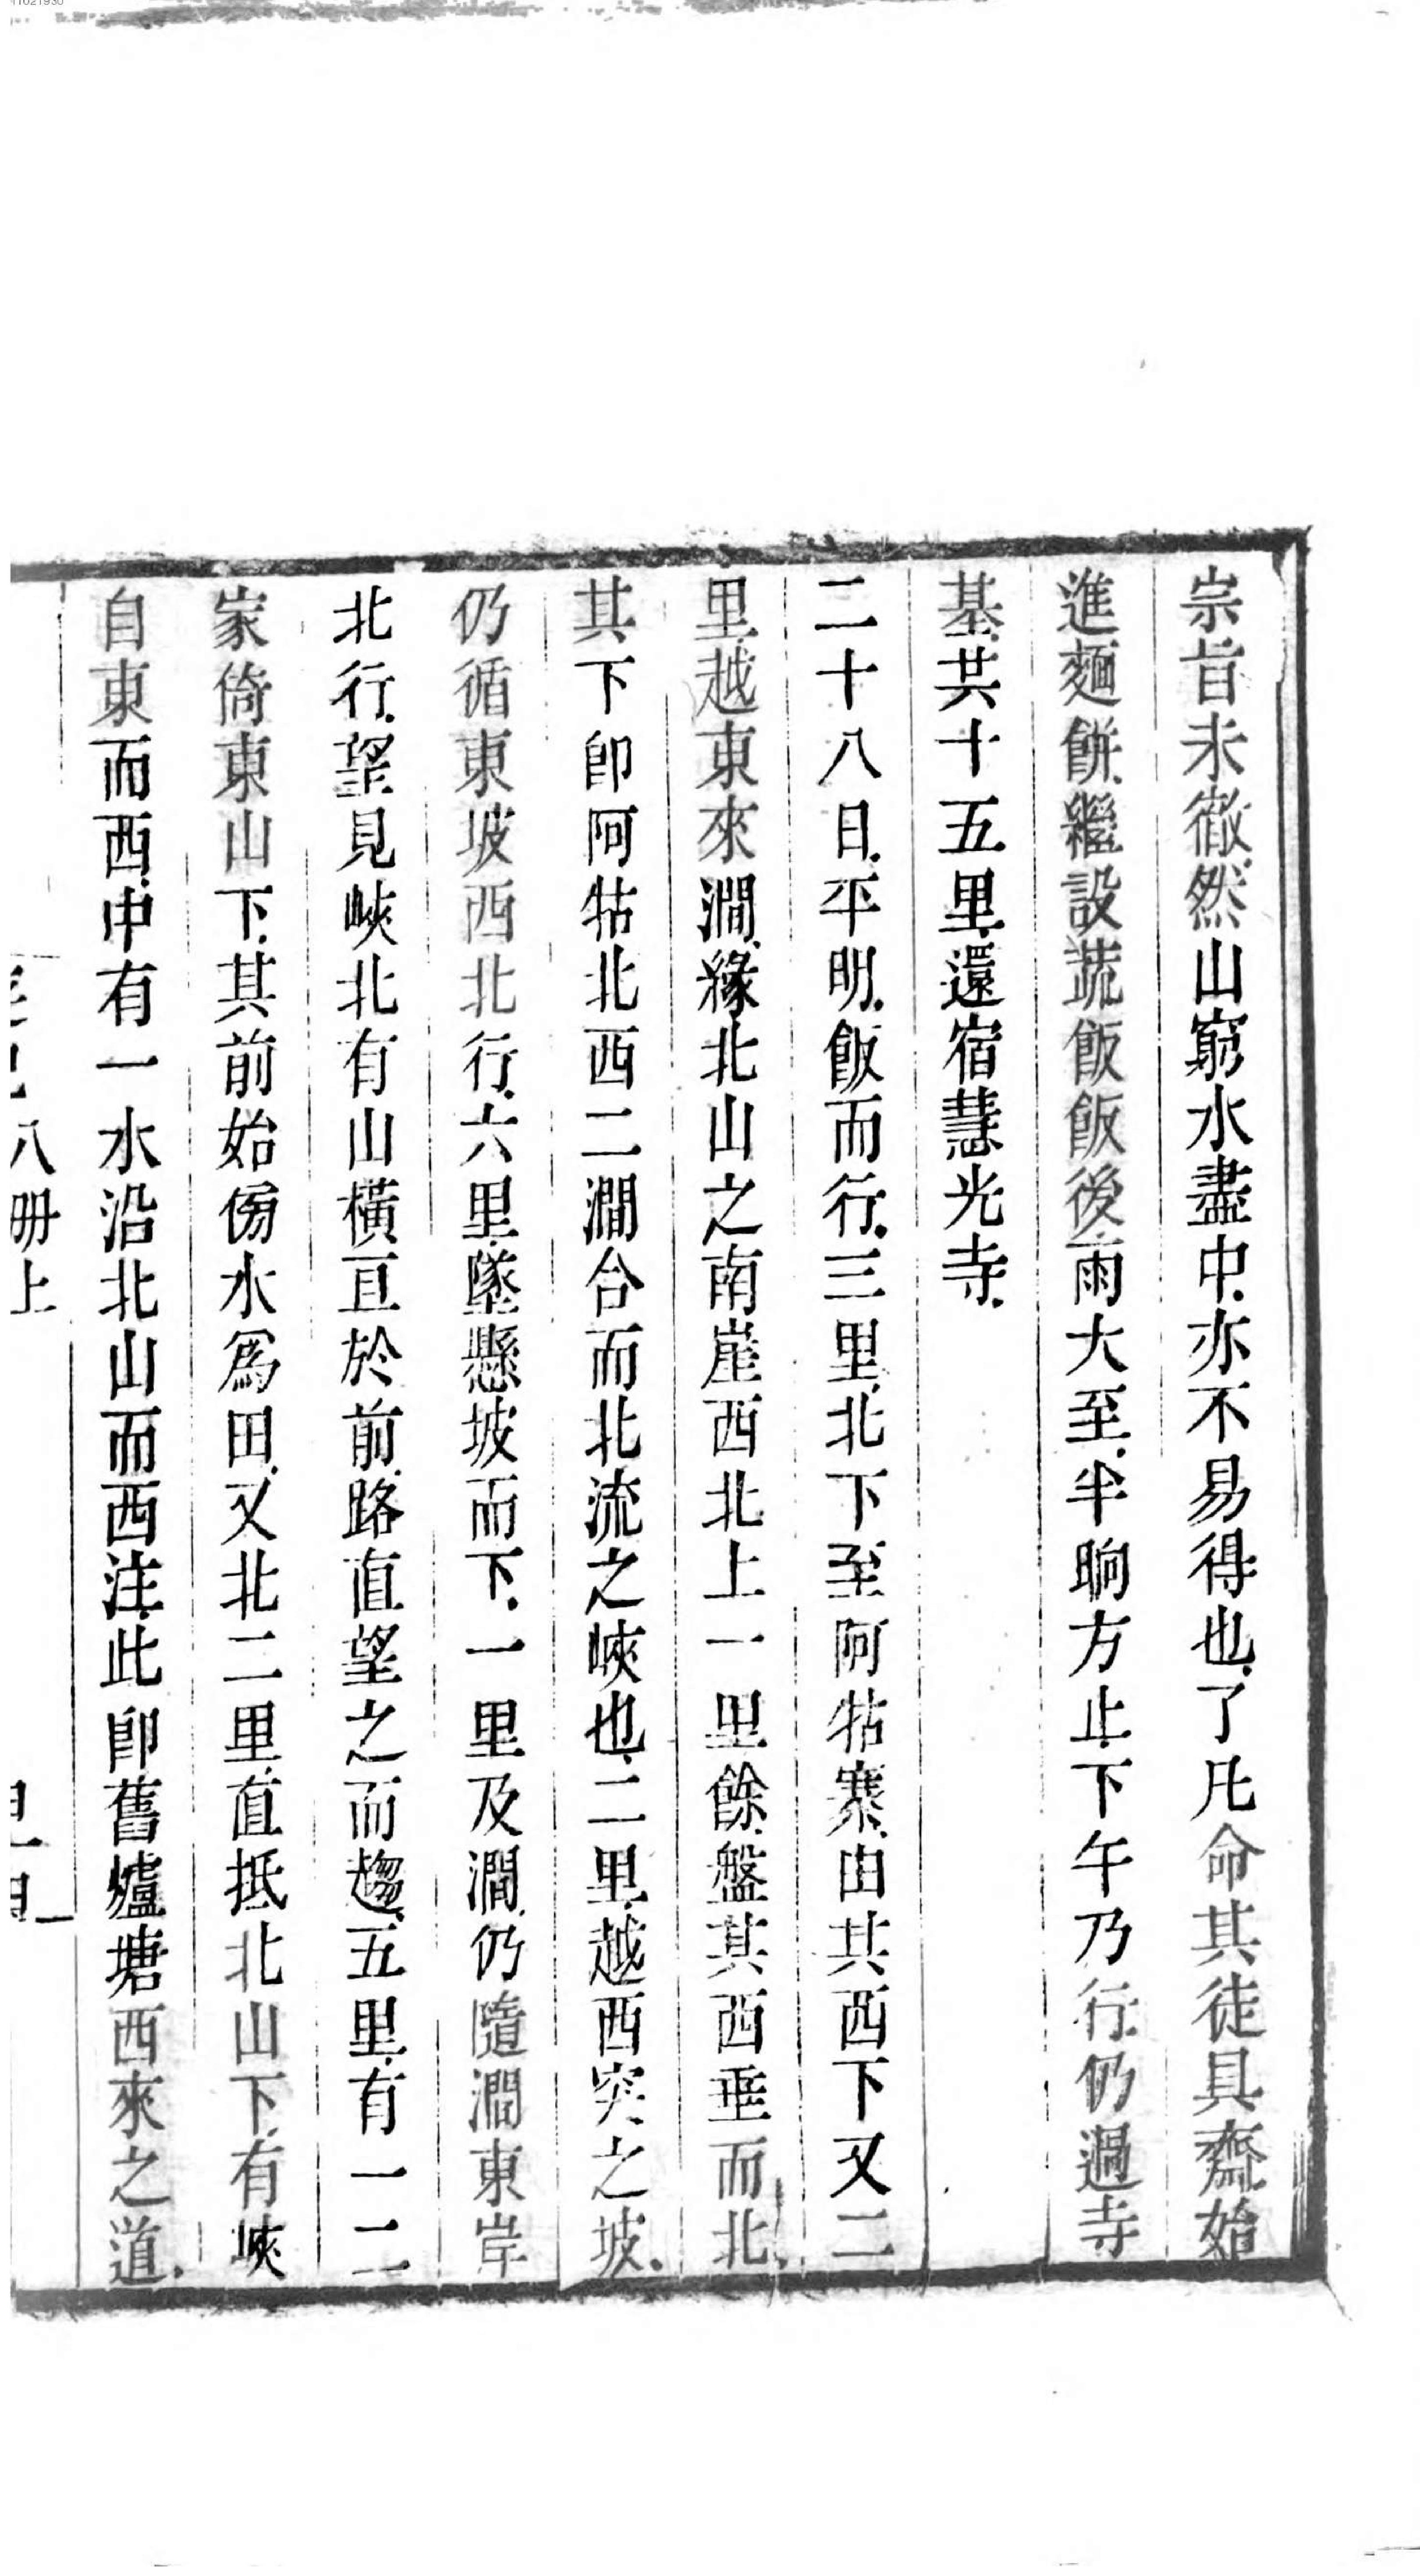 11021930
宗旨未徹然山窮水盡中亦不易得也了凡命其徒具齋始
進麵餅繼設蔬飯飯後雨大至半晌方止下午乃行仍過寺
基共十五里還宿慧光寺
二十八日平明飯而行三里北下至阿牯寨由其西下又二
里越東來澗緣北山之南崖西北上一里餘盤其西垂而北
其下卽阿牯北西二澗合而北流之峽也二里越西突之坡
仍循東坡西北行六里墜懸坡而下一里及澗仍隨澗東岸
北行望見峽北有山橫亘於前路直望之而趨五里有一二
家倚東山下其前始傍水爲田又北二里直抵北山下有峽
自東而西中有一水沿北山而西注此卽舊爐塘西來之道
八册上